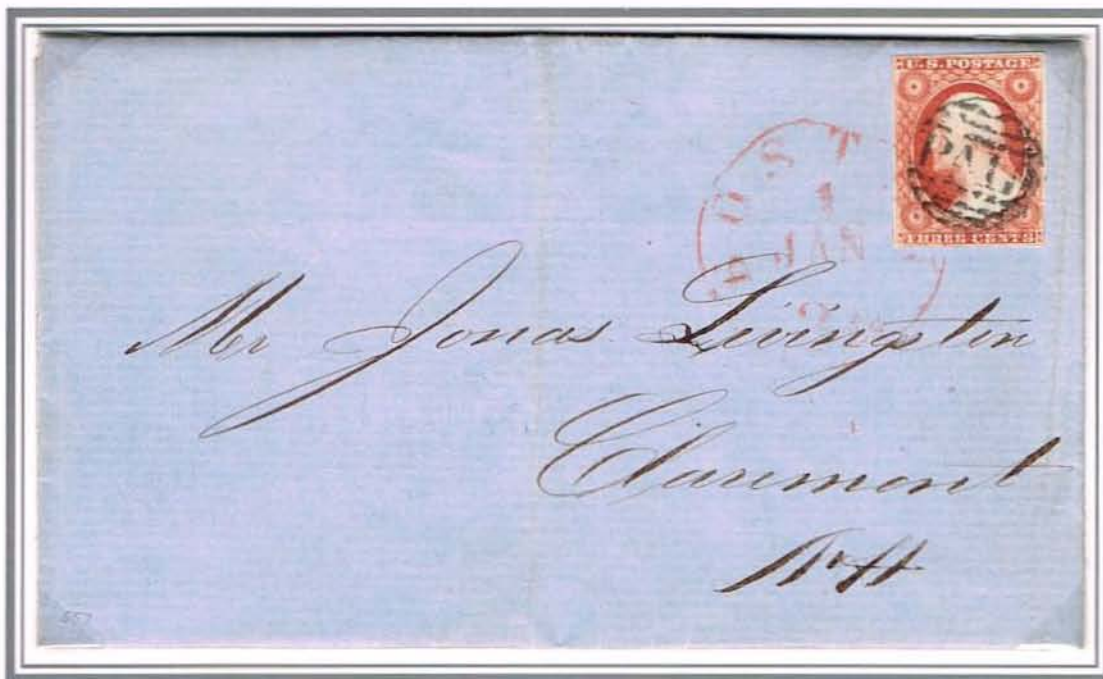 U.S. POSTAGE
PAID
THREE CENTS
BOST
1
JAN
Mr Jonas Livingston
Claremont
N.H